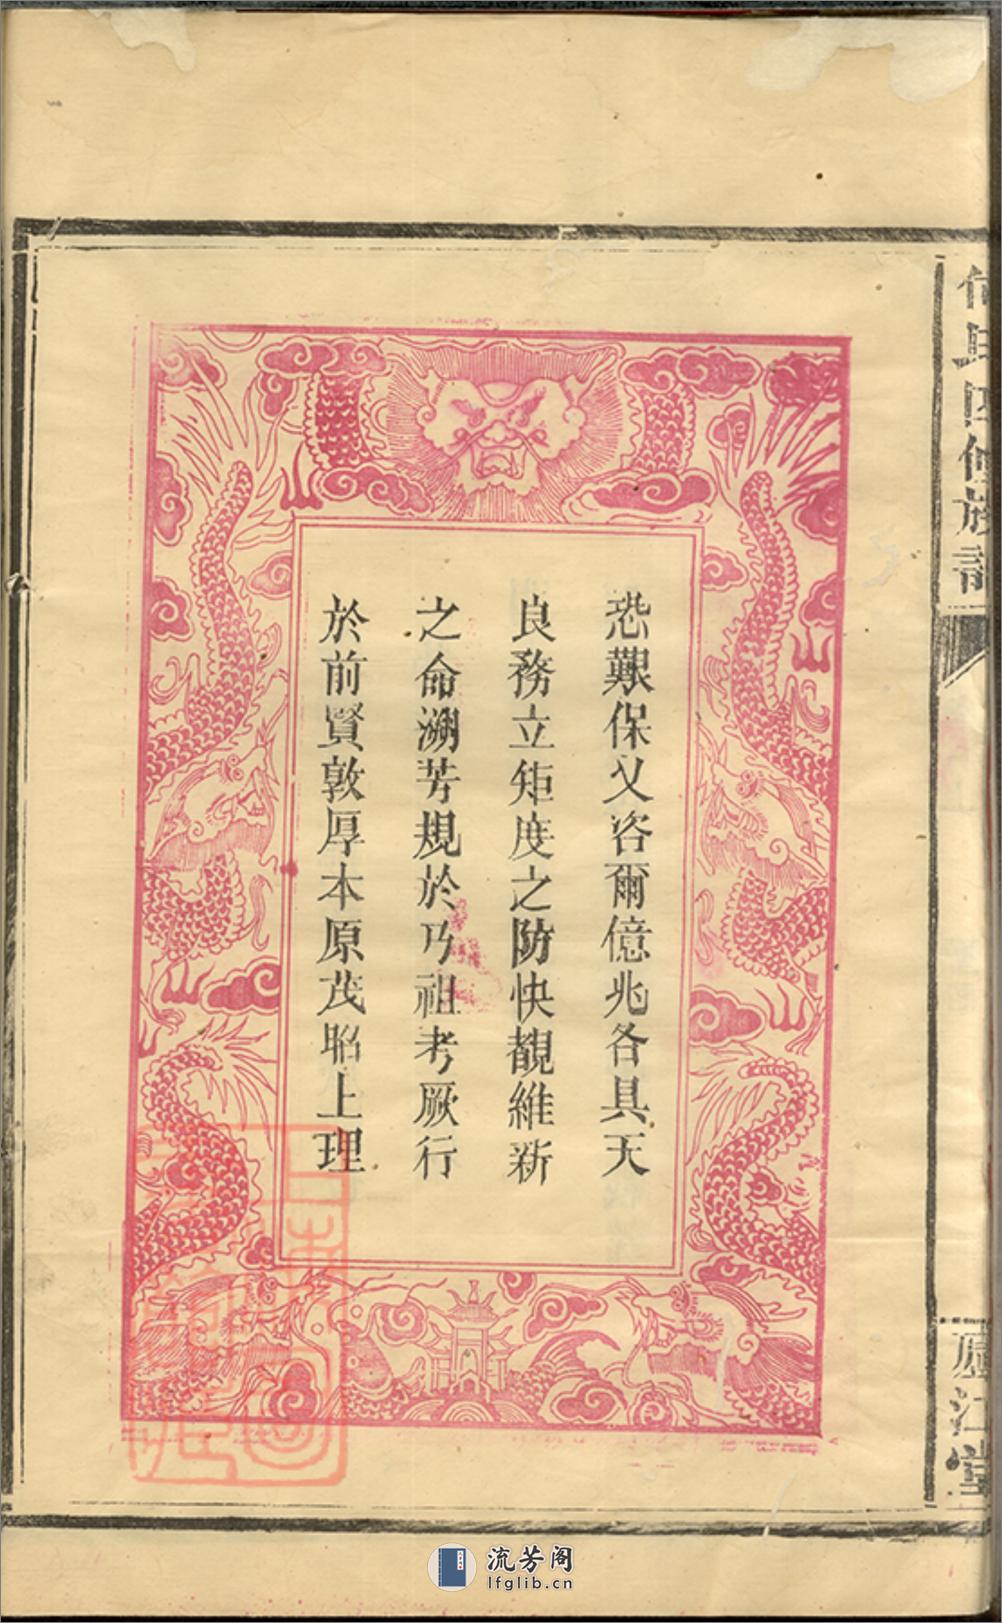 何氏四修族譜
廬江堂
恐艱保乂咨爾億兆各具天
良務立矩度之防快覩維新
之命溯芳規於乃祖考厥行
於前賢敦厚本原茂昭上理
流芳阁
lfglib.cn